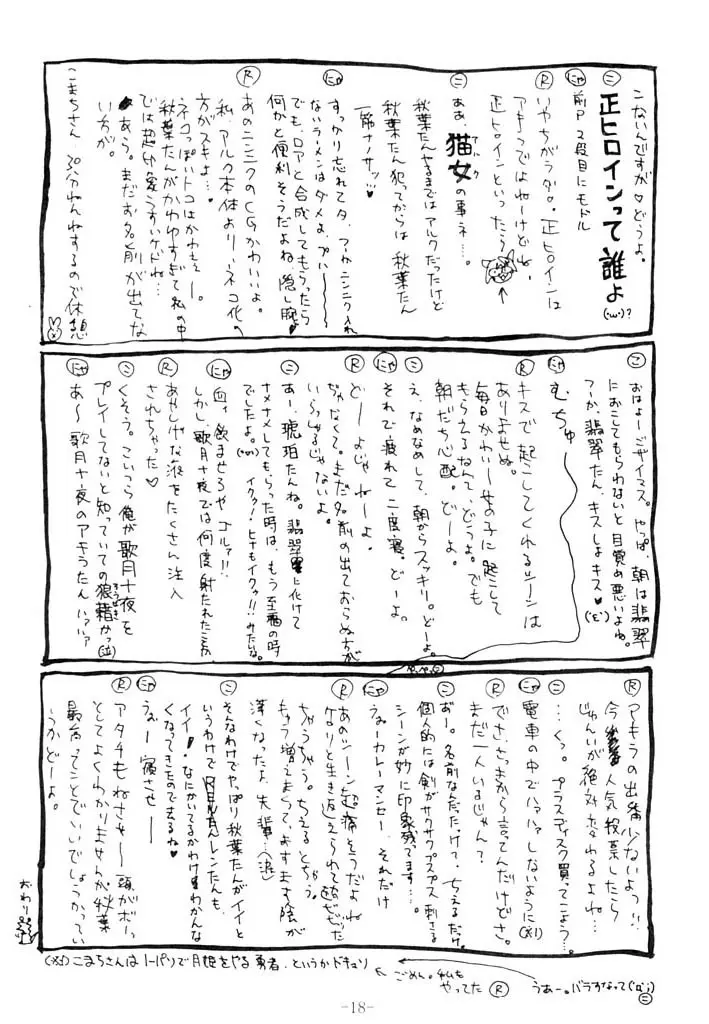 こないんですが♡どうよ。
㊁ 正ヒロインって誰よ(・ω・)?
にゃ 前P2段目にモドル
R いやちがうダロ。正ヒロインは
アキラではねーけどサ。
正ヒロインといったら
㊁ ああ、猫女の事ネ…。
秋葉たんやるまではアルクだったけど
秋葉たん犯ってからは秋葉たん
一筋ナノサッ…♡
にゃ すっかり忘れてタ、つーかニンニク入れ
ないラーメンはダメよ、プハー
でも、ロアと合成してもらったら
何かと便利そうだよね隠し腕
R あのニンニクのCGかわいいよ。
私、アルク本体より、ネコ化の
方がスキよ…
ネコっぽいトコはかわええー。
秋葉たんがかわゆすぎて私の中
では超印象うすいケドね…
あぅ。まだお名前が出てな
い方が。
こまちさん30分ねんねするので休憩
㋙ おはよーゴザイマス。やっぱ、朝は翡翠
におこしてもらわないと目覚め悪いよね。
つーか、翡翠たん、キスしよキス♥
にゃ むちゅ
R キスで起こしてくれるシーンは
ありませぬ。
毎日かわいー女の子に起こして
もらえるなんて、どうよ。でも
朝だち心配。どーよ。
㊁ え、なめなめして、朝からスッキリ。どーよ。
にゃ それで疲れて二度寝。どーよ。
R どーよじゃねーよ。
ぢゃなくて。まだ名前の出ておらぬ方が
いらっしゃるじゃないよ。
㊁ あー、琥珀たんね。翡翠に化けて
ナメナメしてもらった時は、もう至福の時
でしたよ。イクッ!ヒャもイクゥ!!みたいな。
にゃ 血ィ飲ませろやゴルァ!!
しかし、歌月十夜では何度射たれたことか
R あやしげな液をたくさん注入
されちゃった♡
㊁ くそう。こいつら俺が歌月十夜を
プレイしてないと知っていての狼藉かっ(泣)
にゃ あ〜歌月十夜のアキラたんハァハァ
R アキラの出番少ないよっ!!
今人気投票したら
じゅんいが絶対変わるよね…
㊁ …くっ。プラスディスク買ってこよう…。
にゃ 電車の中でハァハァしないように(※1)
R でさ、さっきから言ってんだけどさ。
まだ一人いるじゃん?
㊁ おー。名前なんだたっけて、ちえるだけ。
個人的には剣がサクサクプスプス刺さる
シーンが妙に印象残ってます…。
にゃ うぉーカレーマンセー。それだけ
R あのシーン超痛そうだよね
ちゃうちゃう。ちえるとちゃう。
深くなったよ、先輩…(泣)
㊁ そんなわけでやっぱり秋葉たんがイイと
いうわけでレンたんも
イイ!なにかいてるかわけわかんな
くなってきたので去るね♥
にゃ うおー寝させー
R アタチもねさせー 頭がボーッ
としてよくわかりませんが秋葉
最高ってことでいいでしょうかってい
うかどーよ。
おわり
(※1)こまちさんはノーパソで月姫をやる勇者。というかドキュソ
ごめん。私も
やってた R
うあー。バラすなって ㊁
-18-